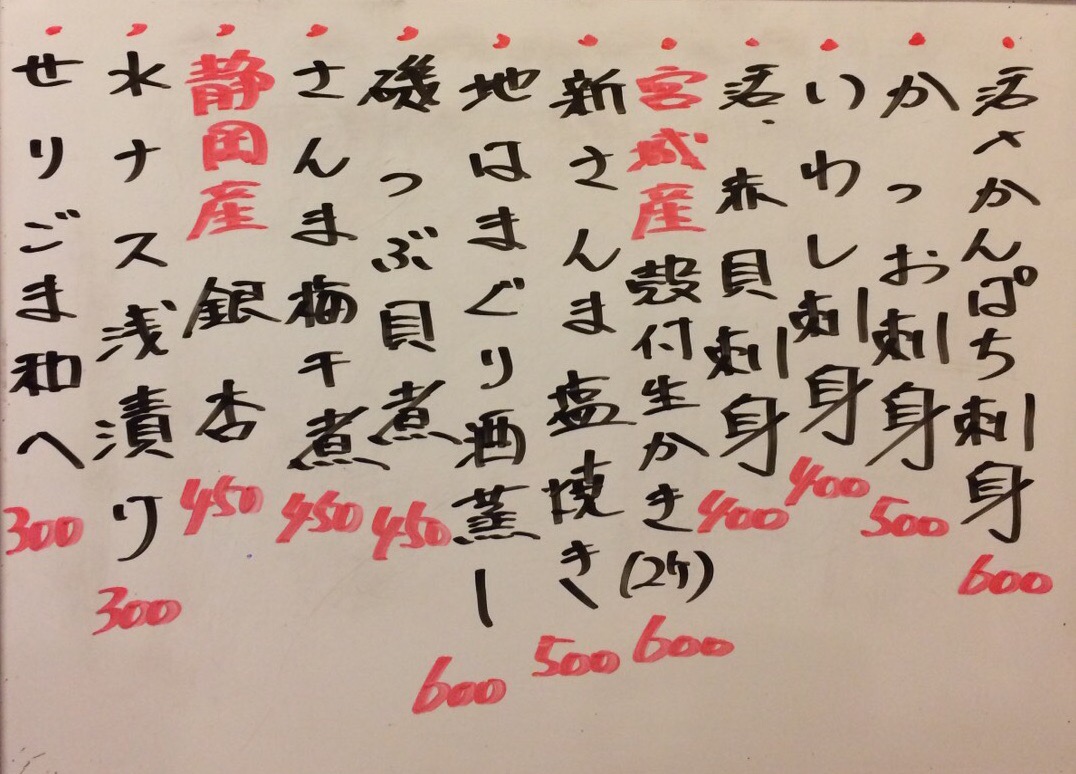 活〆かんぱち刺身 600
かつお刺身 500
いわし刺身 400
活赤貝刺身 400
宮城産殻付生かき(2ケ) 600
新さんま塩焼き 500
地はまぐり酒蒸し 600
磯つぶ貝煮 450
さんま梅干煮 450
静岡産銀杏 450
水ナス浅漬り 300
せりごま和へ 300